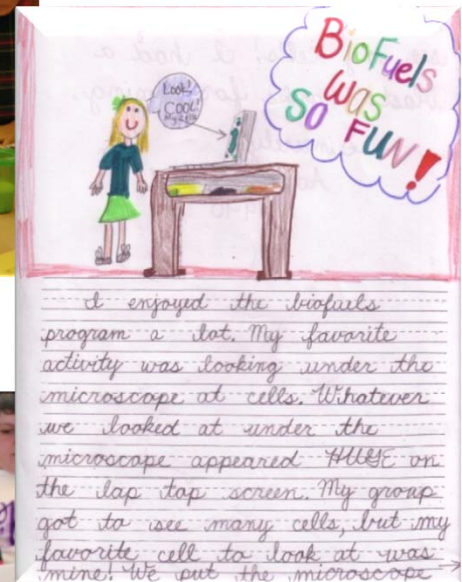 BioFuels
was
SO FUN!
Look!
COOL!
I enjoyed the biofuels
program a lot. My favorite
activity was looking under the
microscope at cells. Whatever
we looked at under the
microscope appeared HUGE on
the lap top screen. My group
got to see many cells, but my
favorite cell to look at was
mine! We put the microscope